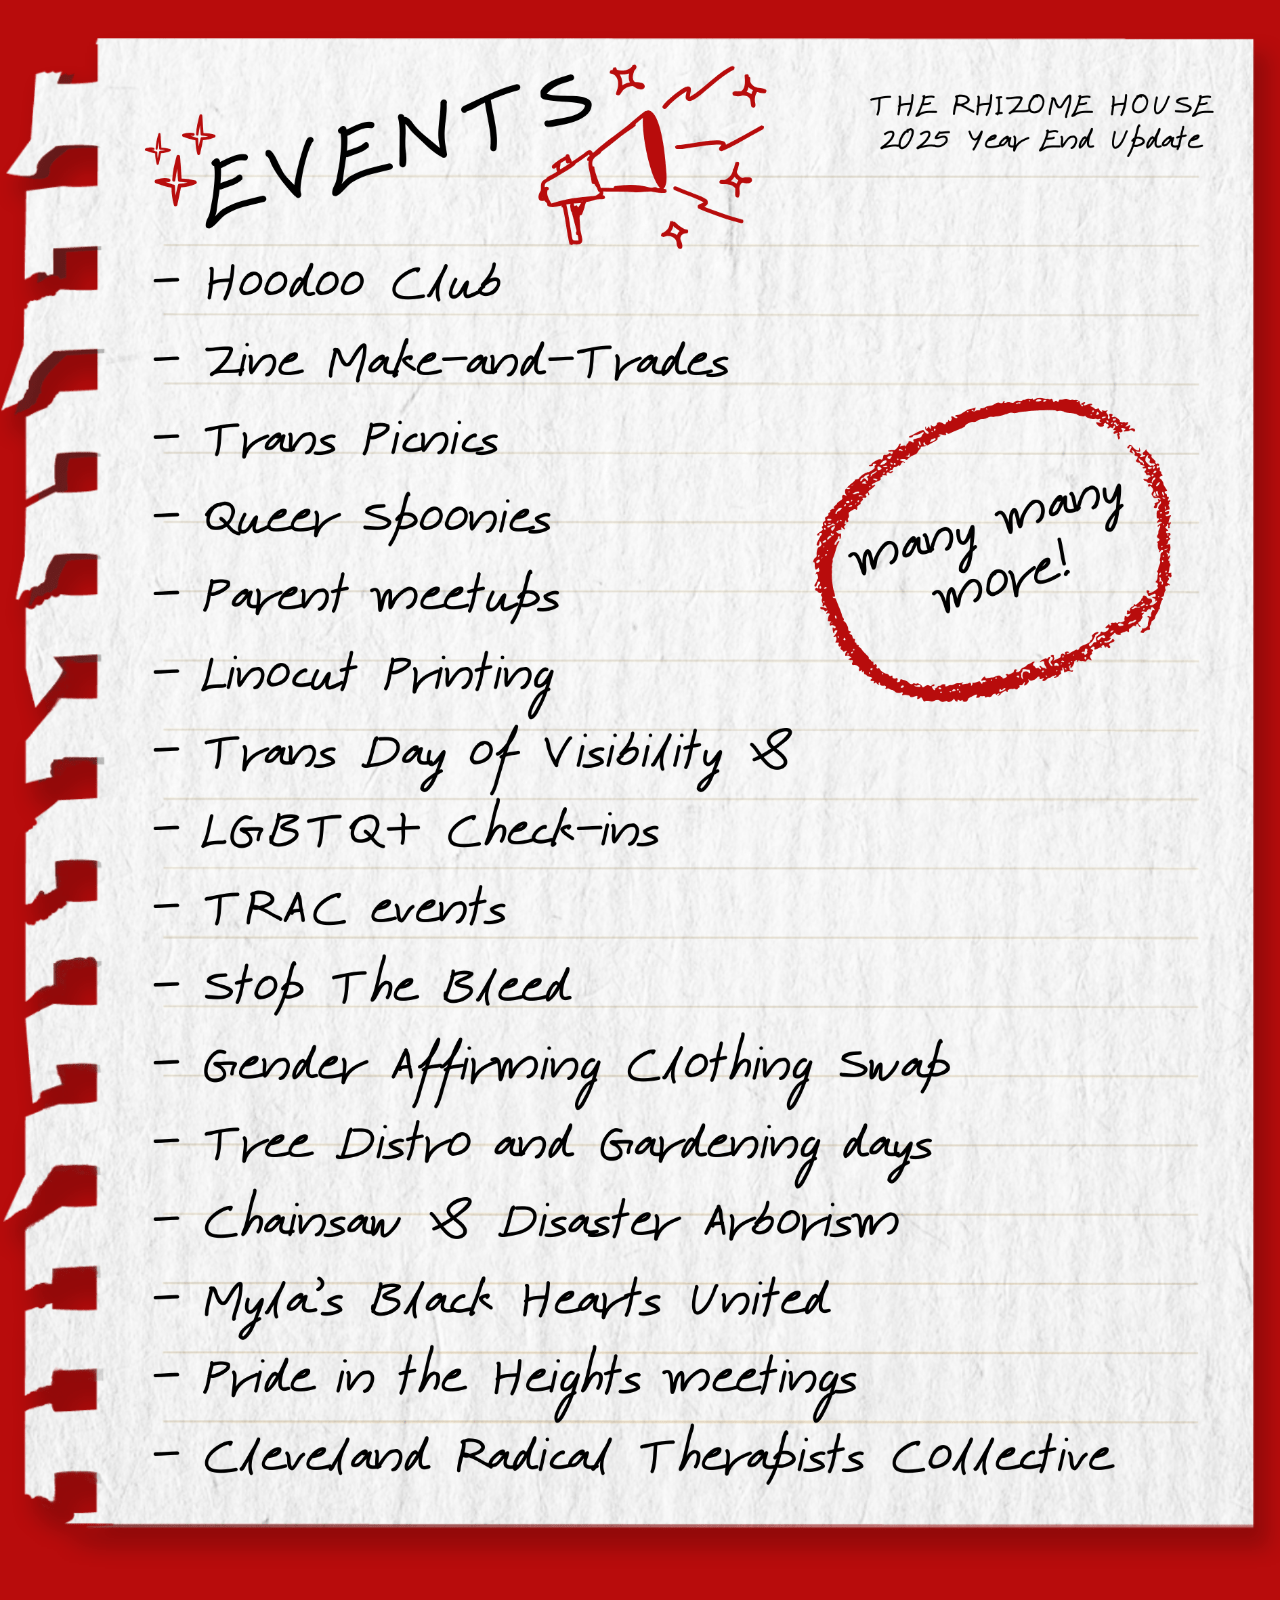 EVENTS
THE RHIZOME HOUSE
2025 Year End Update
- Hoodoo Club
- Zine Make-and-Trades
- Trans Picnics
- Queer Spoonies
- Parent meetups
- Linocut Printing
- Trans Day of Visibility &
- LGBTQ+ Check-ins
- TRAC events
- Stop The Bleed
- Gender Affirming Clothing Swap
- Tree Distro and Gardening days
- Chainsaw & Disaster Arborism
- Myla's Black Hearts United
- Pride in the Heights meetings
- Cleveland Radical Therapists Collective
many many
more!